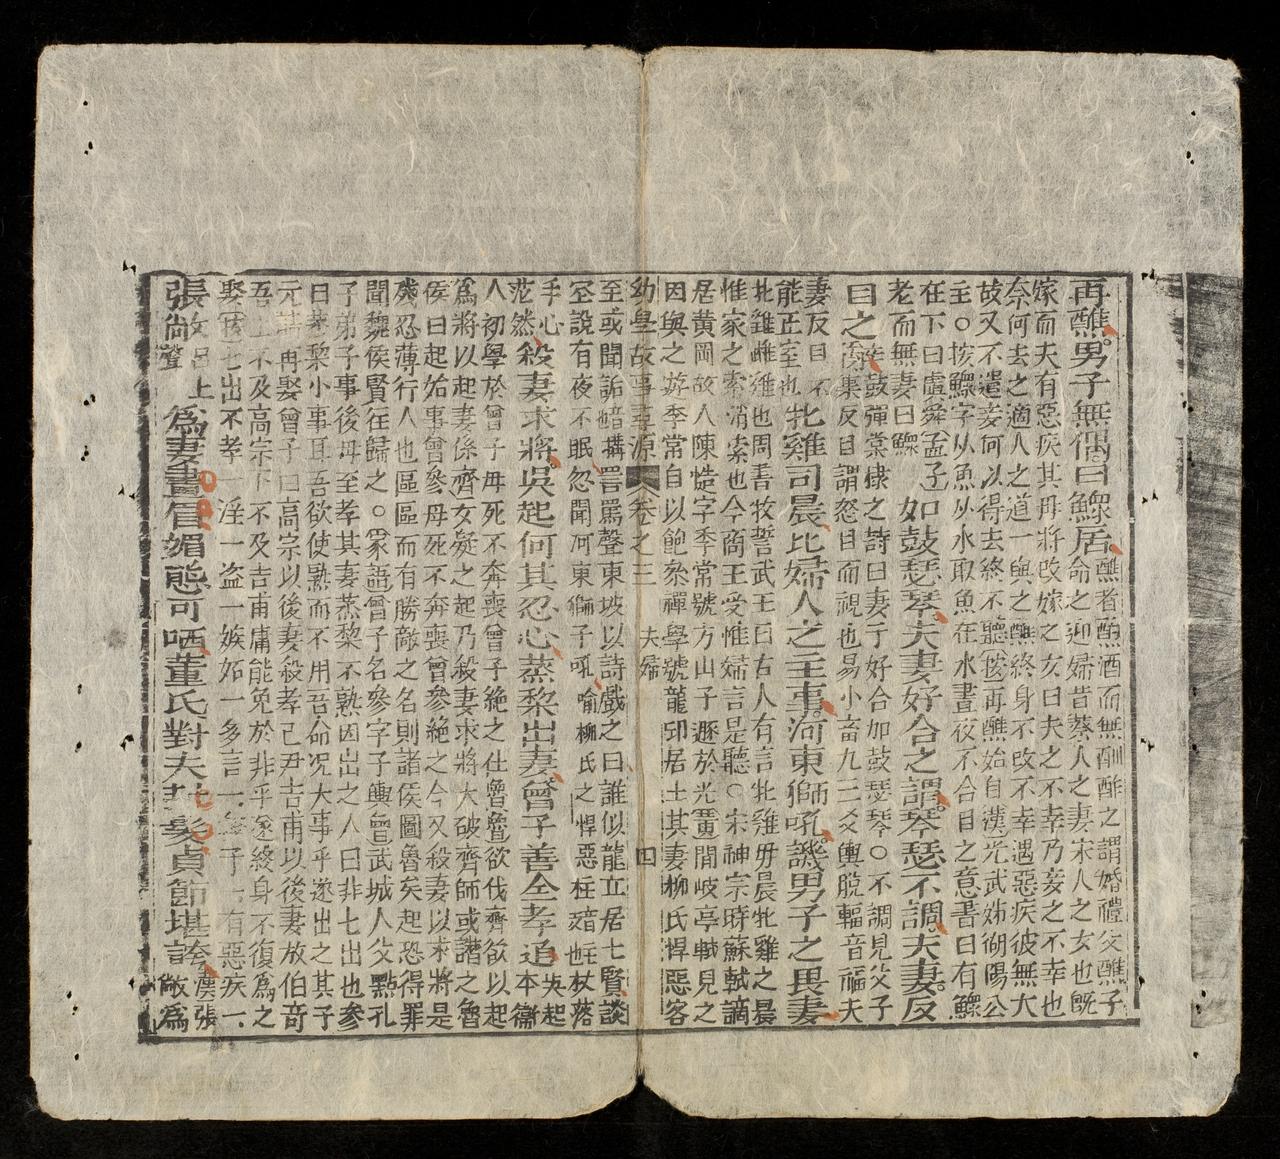 再醮男子無偶曰鰥居醮者酌酒而無酬酢之謂婚禮父醮子
命之迎婦昔蔡人之妻宋人之女也旣
嫁而夫有惡疾其母將改嫁之女曰夫之不幸乃妾之不幸也
奈何去之適人之道一與之醮終身不改不幸遇惡疾彼無大
故又不遣妾何以得去終不聽後再醮始自漢光武姊湖陽公
主○按鰥字从魚从水取魚在水晝夜不合目之意書曰有鰥
在下曰虞舜孟子
老而無妻曰鰥如鼓瑟琴夫妻好合之謂琴瑟不調夫妻反
目之詞鼓彈棠棣之詩曰妻子好合如鼓瑟琴○不調見父子
集反目謂怒目而視也易小畜九三爻輿脫輻音福夫
妻反目不
能正室也牝雞司晨比婦人之主事河東獅吼譏男子之畏妻
牝雞雌雞也周書牧誓武王曰古人有言牝雞毋晨牝雞之晨
惟家之索消索也今商王受惟婦言是聽○宋神宗時蘇軾謫
居黃岡故人陳慥字季常號方山子遯於光黃間岐亭軾見之
因與之遊季常自以飽參禪學號龍邱居士其妻柳氏悍惡客
幼學故事尋源 卷之三 夫婦 四
至或聞詬暗搆詈罵聲東坡以詩戲之曰誰似龍丘居士賢談
空說有夜不眠忽聞河東獅子吼喻柳氏之悍惡柱䠂也拄杖落
手心
茫然殺妻求將吳起何其忍心蒸黎出妻曾子善全孝道吳起
本衛
人初學於曾子母死不奔喪曾子絶之仕魯魯欲伐齊欲以起
爲將以起妻係齊女疑之起乃殺妻求將大破齊師或譖之魯
侯曰起始事曾參母死不奔喪曾參絶之今又殺妻以求將是
殘忍薄行人也區區而有勝敵之名則諸侯圖魯矣起恐得罪
聞魏侯賢往歸之○家語曾子名參字子輿曾武城人父點孔
子弟子事後母至孝其妻蒸黎不熟因出之人曰非七出也參
曰蒸黎小事耳吾欲使熟而不用吾命况大事乎遂出之其子
元請再娶曾子曰高宗以後妻殺孝己尹吉甫以後妻放伯奇
吾上不及高宗下不及吉甫庸能免於非乎遂終身不復爲之
娶 七出不孝一淫一盗一嫉妬一多言一無子一有惡疾一
張敞上
聲爲妻畫眉媚態可哂董氏對夫封髮貞節堪誇漢張
敞爲